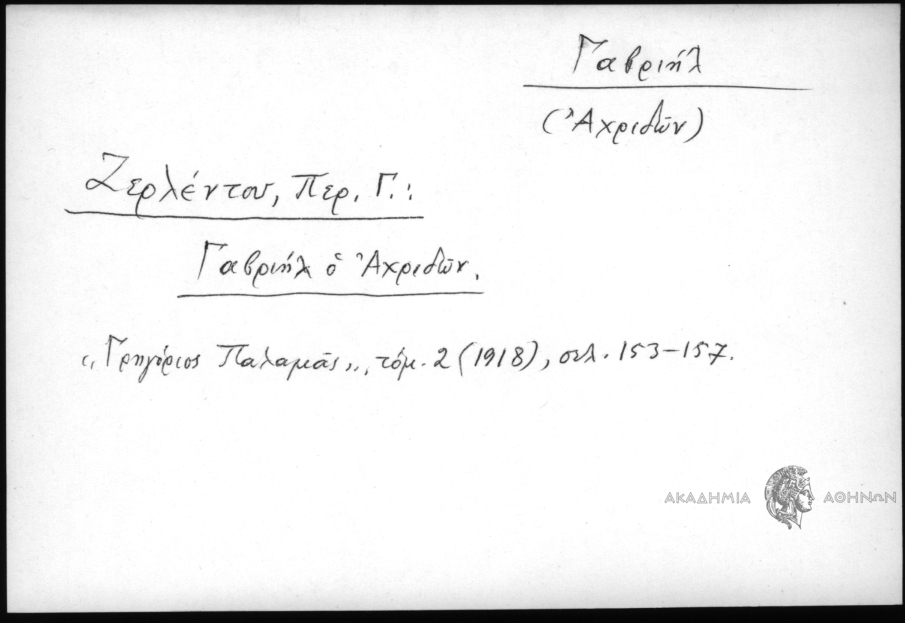 Γαβριήλ
(Ἀχριδῶν)
Ζερλέντου, Περ. Γ.:
Γαβριήλ ὁ Ἀχριδῶν.
"Γρηγόριος Παλαμᾶς", τόμ. 2 (1918), σελ. 153-157.
ΑΚΑΔΗΜΙΑ ΑΘΗΝΩΝ